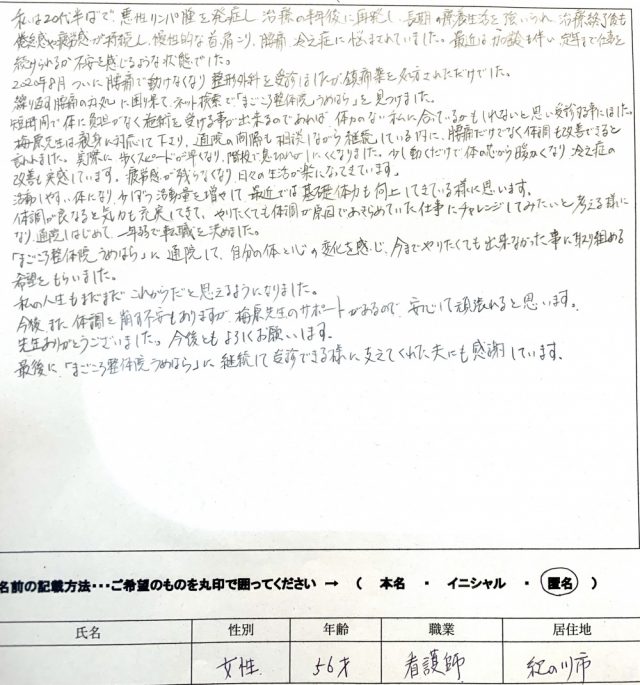 私は20代半ばで悪性リンパ腫を発症し治療の半年後に再発し、長期の療養生活を強いられ、治療終了後も
倦怠感や疲労感が持続し、慢性的な首肩こり、腰痛、冷え症に悩まされていました。最近は加齢も伴い定年まで仕事を
続けられるか不安を感じるような状態でした。
2020年8月ついに腰痛で動けなくなり整形外科を受診しましたが鎮痛薬を処方されただけでした。
繰り返す腰痛のために困り果て、ネット検索で「まごころ整体院うめはら」を見つけました。
短時間で体に負担がなく施術を受ける事が出来るのであれば、体力のない私に合っているかもしれないと思い受診する事にしました。
梅原先生は親身に対応して下さり、通院の間隔も相談しながら継続している内に、腰痛だけでなく体調も改善できると
言われました。実際に歩くスピードが早くなり、階段で息切れがしにくくなりました。少し動くだけで体の芯から暖かくなり冷え症の
改善も実感しています。疲労感が残らなくなり日々の生活が楽になってきています。
活動しやすい体になり、少しずつ活動量を増やして最近では基礎体力も向上してきている様に思います。
体調が良くなると気力も充実してきて、やりたくても体調が原因であきらめていた仕事にチャレンジしてみたいと考える様に
なり通院しはじめて一年弱で転職を決めました。
「まごころ整体院うめはら」に通院して、自分の体と心の変化を感じ、今までやりたくても出来なかった事に取り組める
希望をもらいました。
私の人生もまだまだこれからだと思えるようになりました。
今後、また体調を崩す不安もありますが、梅原先生のサポートがあるので、安心して頑張れると思います。
先生ありがとうございました。今後ともよろしくお願いします。
最後に、「まごころ整体院うめはら」に継続して受診できる様に支えてくれた夫にも感謝しています。
名前の記載方法・・・ご希望のものを丸印で囲ってください → （ 本名 ・ イニシャル ・ 匿名 ）
氏名 性別 年齢 職業 居住地
女性 56才 看護師 紀の川市